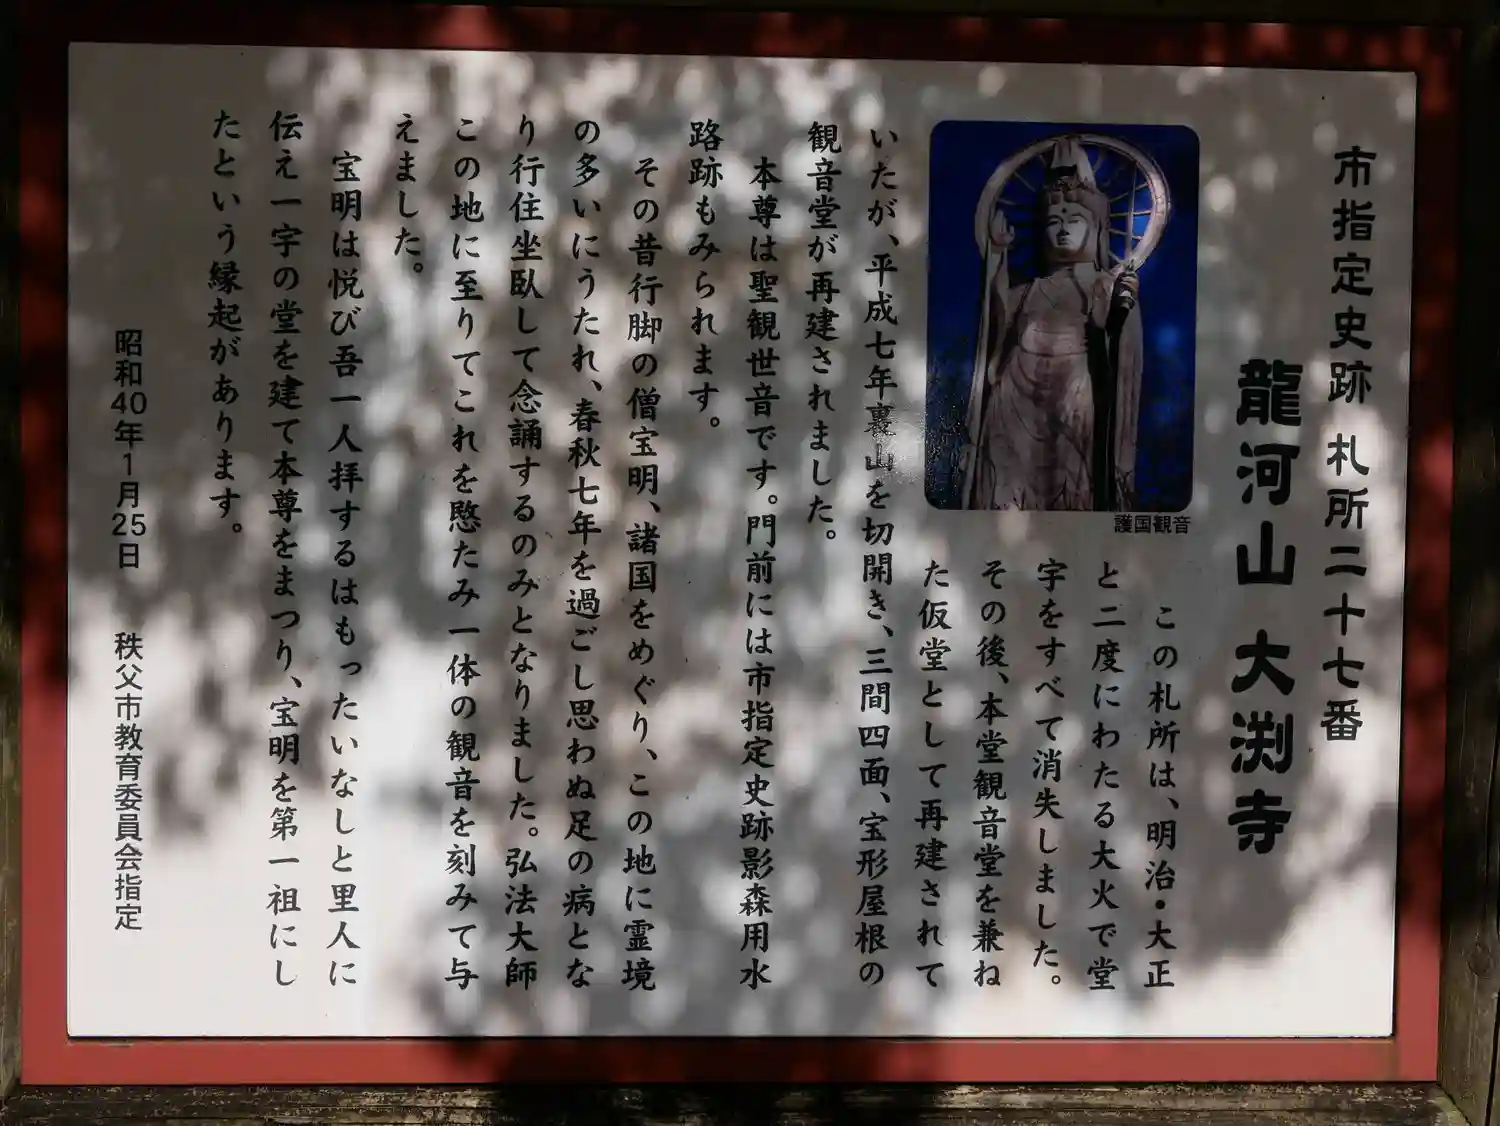 市指定史跡 札所二十七番
龍河山 大渕寺
護国観音
この札所は、明治・大正
と二度にわたる大火で堂
宇をすべて消失しました。
その後、本堂観音堂を兼ね
た仮堂として再建されて
いたが、平成七年裏山を切開き、三間四面、宝形屋根の
観音堂が再建されました。
本尊は聖観世音です。門前には市指定史跡影森用水
路跡もみられます。
その昔行脚の僧宝明、諸国をめぐり、この地に霊境
の多いにうたれ、春秋七年を過ごし思わぬ足の病とな
り行住坐臥して念誦するのみとなりました。弘法大師
この地に至りてこれを愍たみ一体の観音を刻みて与
えました。
宝明は悦び吾一人拝するはもったいなしと里人に
伝え一宇の堂を建て本尊をまつり、宝明を第一祖にし
たという縁起があります。
昭和40年1月25日 秩父市教育委員会指定